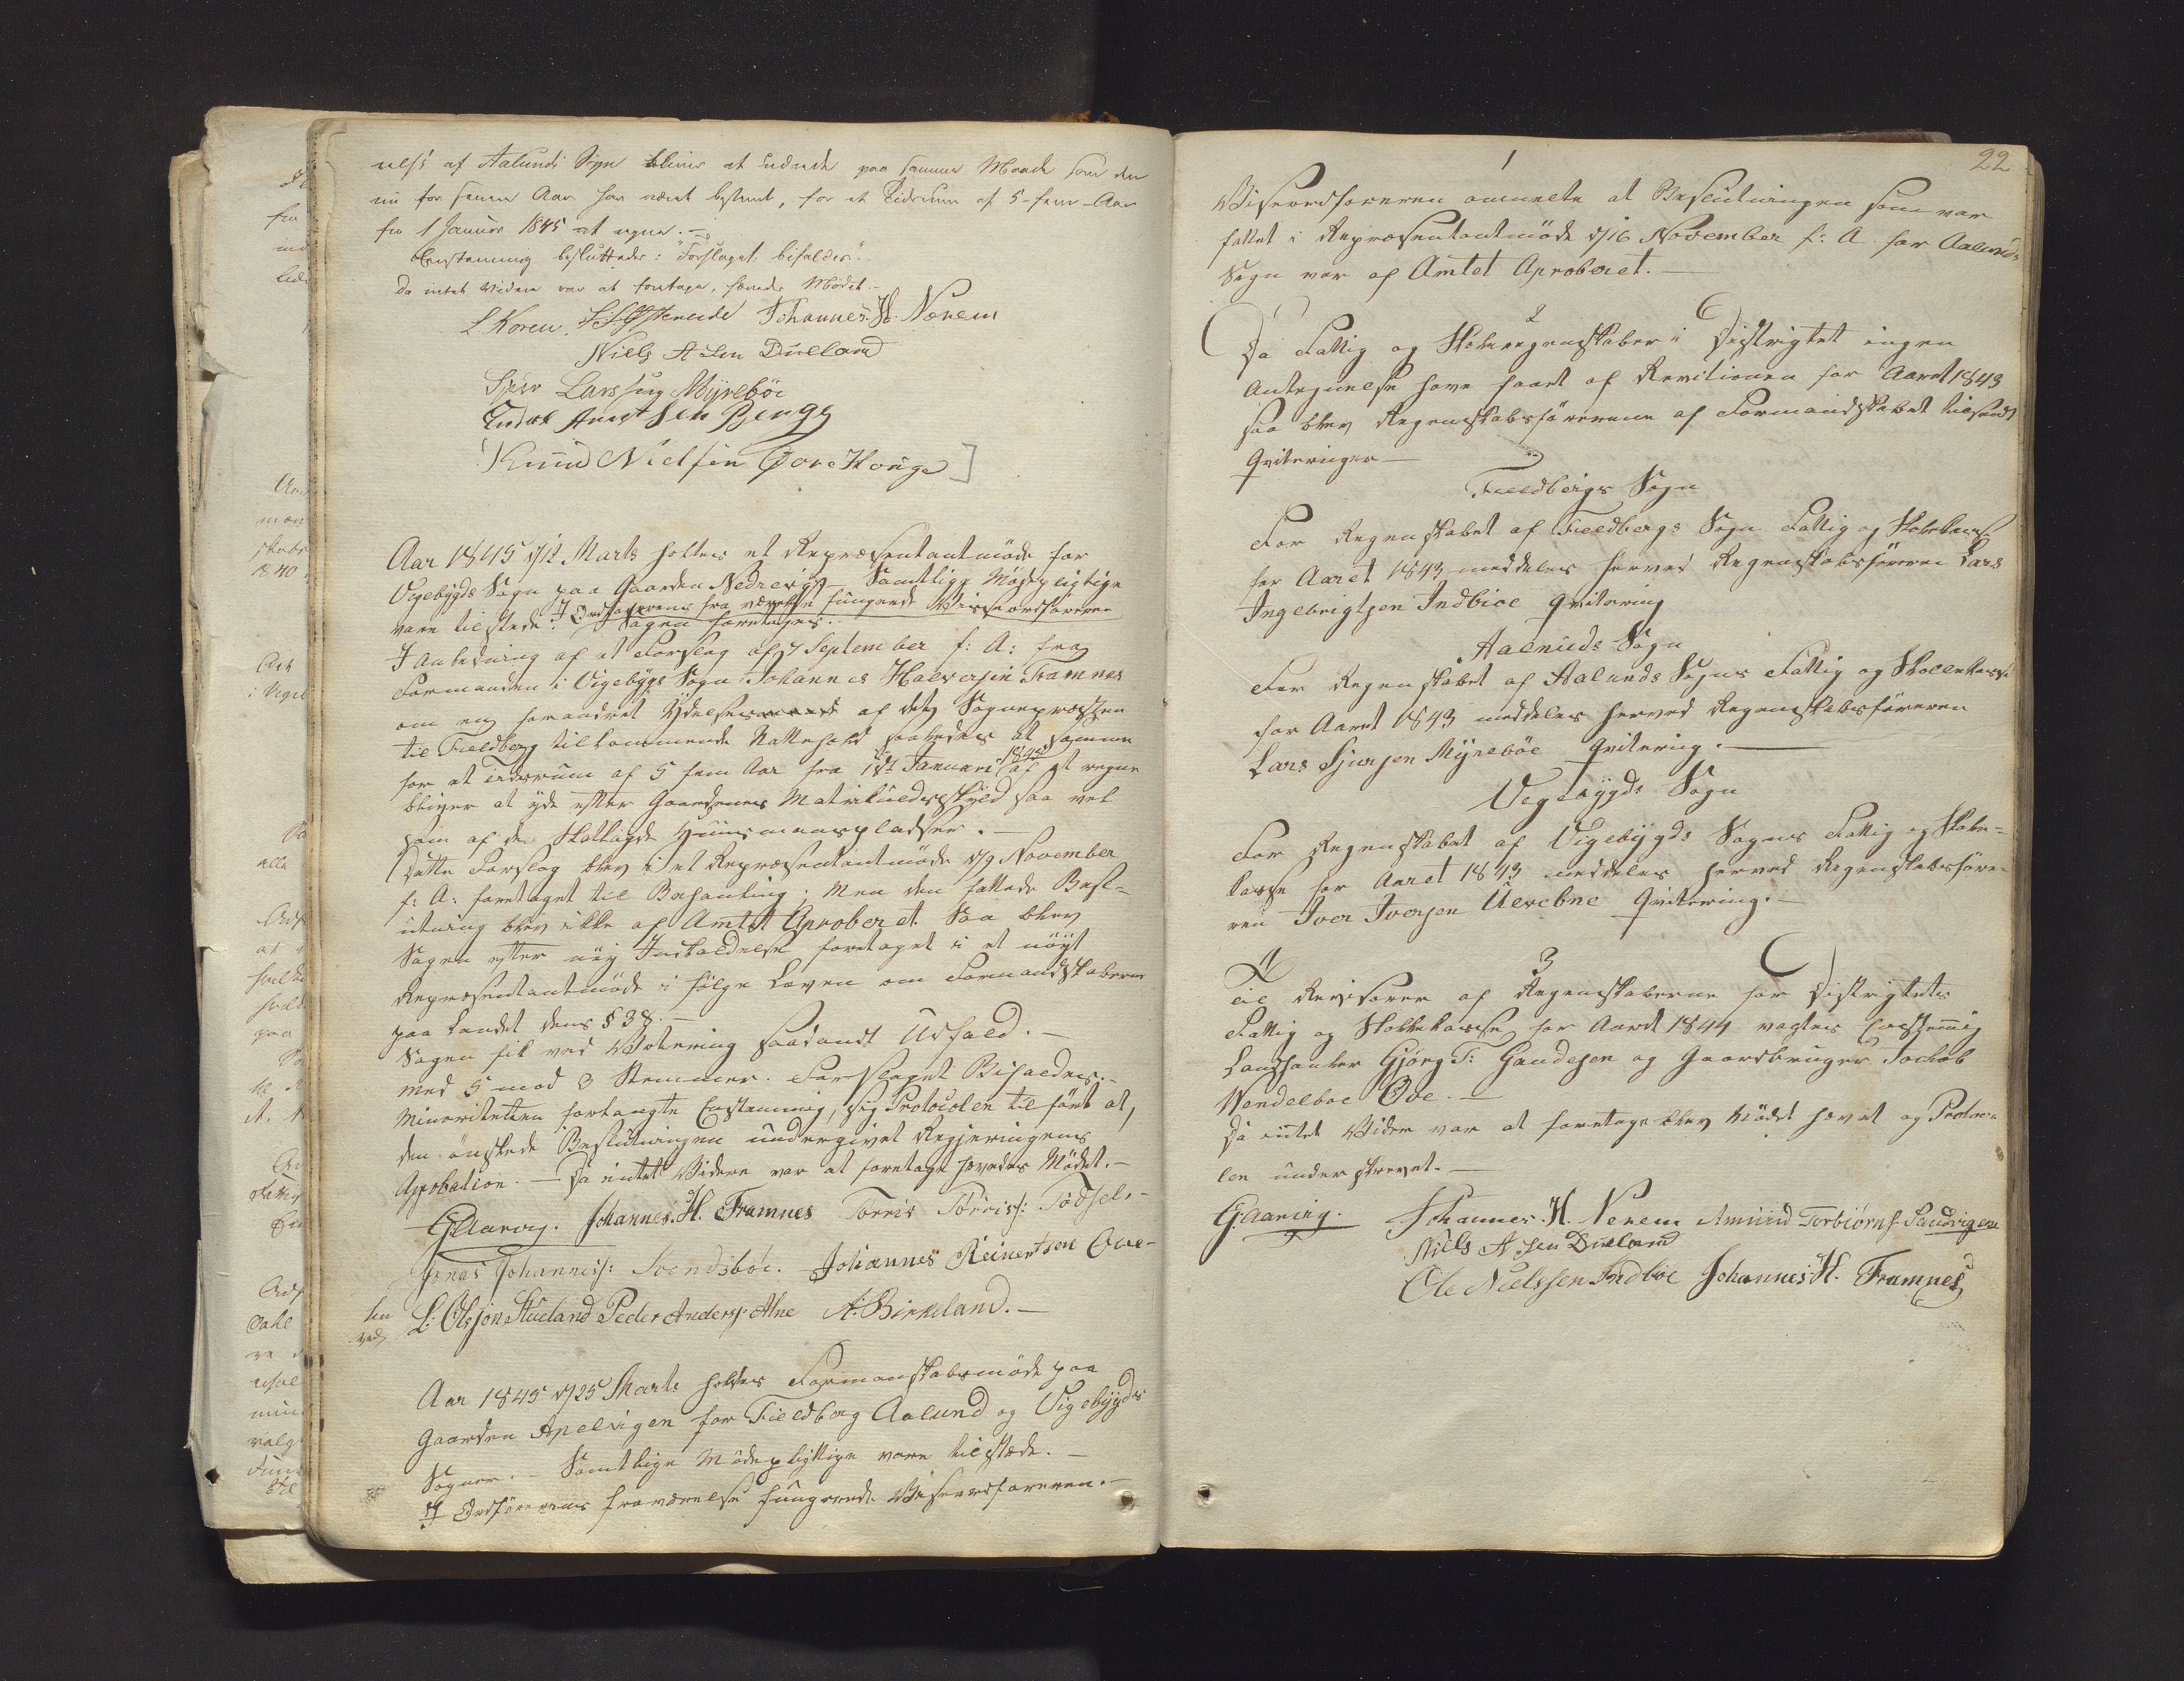 else af Aalunds Sogn bliver at udrede paa samme Maade som den
nu for fenen Aar har været bestemt, for et Tidsrum af 5-fem-Aar
fra 1 Januar 1845 at regne.-
Eenstemmig besluttedes: "Forslaget bifaldes".
Da intet videre var at foretage, hævedes Mødet.-
L. Koren. Johannes. H. Nerem
Niels A sen Dueland
Sjur Larssen Myrebøe
Endre Amundsen Berge
Knud Nielsen Øvre Houge
Aar 1845 d/12 Marts holdtes et Repræsentantmøde for
Vigebygds Sogn paa Gaarden Nedrevig - Samtlige Mødepligtige
vare tilstede. I Ordførerens fra værelse fungerede Viseordføreren
Sagen foretoges.
I Anledning af et Forslag af 7 September f: A: fra
Formanden i Vigebygds Sogn Johannes Halversen Framnes
om en forandret Ydelsesmaade af det Sognepræsten
til Fieldberg tilkommende Nattehold saaledes at samme
for et tidsrum af 5 fem Aar fra 1ste Januari 1845 af at regne
bliver at yde efter Gaardenes Matrikulskyld saa vel
som af de Skatlagde Huusmandspladser.-
Dette Forslag blev i et Repræsentantmøde d/9 November
f: A: foretaget til Behandling; Men den fattede Besl=
utning blev ikke af Amtet Aproberet. Saa blev
Sagen efter nøy Indkaldelse foretaget i et nøyt
Repræsentantmøde i følge Loven om Formandskaberne
paa Landet dens § 38.-
Sagen fik ved Votering saadant Udfald.-
med 5 mod 3 Stemmer. Forslaget Bifaldes.-
Minoriteten forlangte Eenstemmig, sig Protocolen tilført at,
den ønskede Beslutningen undergivet Regjeringens
Approbation.- Da intet Videre var at foretage hævedes Mødet.-
G. Aarvig. Johannes. H. Framnes Torris Torriss: Tødsel.-
Jonas Johanness: Svendsbøe. Johannes Reinertsen Ove-
L: Olsson Stueland Peder Anders: Alne A. Birkeland.-
Aar 1845 d/25 Marts holdtes Formandskabsmøde paa
Gaarden Apelvigen for Fieldberg Aalund og Vigebygds
Sogner.- Samtlige Mødepligtige vare tilstæde.-
I Ordførerens fraværelse fungerede Viseordføreren.-
22
1
Viseordføreren anmelte at Beslutningen som var
fattet i Repræsentantmøde d/16 November f: A. for Aalunds
Sogn var af Amtet Aproberet.-
2
Da Fattig og Skoleregenskaber i Distrigtet ingen
Antegnelse have faaet af Revitionen for Aaret 1843
saa blev Regenskabsførerene af Formandskabet tilsendt
Qviteringer-
Fieldbergs Sogn
For Regenskabet af Fieldbergs Sogn Fattig og Skolekasse
for Aaret 1843 meddeles herved Regenskabsføreren Lars
Ingebrigtsen Indbiøe Qvitering
Aalunds Sogn
For Regenskabet af Aalunds Sogns Fattig og Skollekasse
for Aaret 1843 meddeles herved Regenskabsføreren
Lars Sjursen Myrebøe Qvitering.-
Vigebygds Sogn
For Regenskabet af Vigebygds Sogns Fattig og Skole=
kasse for Aaret 1843 meddeles herved Regenskabsføre-
ren Iver Iversen Ulvebne Qvitering.-
3
Til Revisorer af Regenskaberne for Distrigtets
Fattig og Skolekasse for Aaret 1844 valgtes Eenstemmig
Landhandler Gjørg T: Gaudesen og Gaardbruger Jachob
Wendelboe Øve.-
Da intet Vider var at foretage blev Mødet hævet og Protoco-
len underskrevet.-
G. Aarvig. Johannes. H. Nerem Amund Torbiørns. Sandvigen
Niels A sen Dueland
Ole Nielssen Indbiøe Johannes H. Framnes